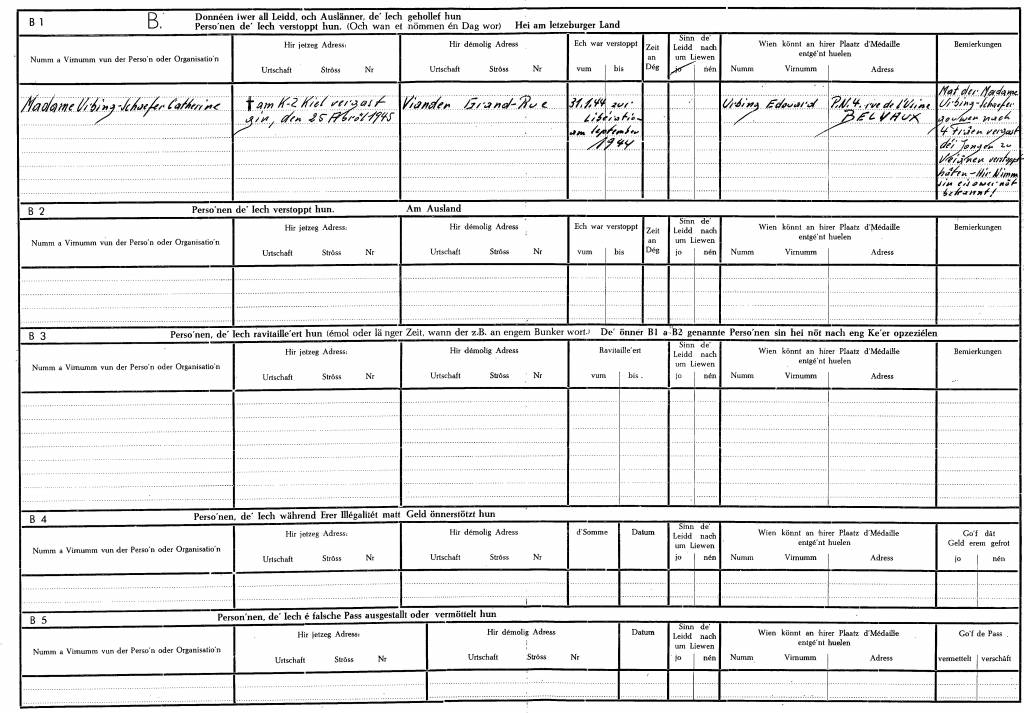 B 1 B. Donnéen iwer all Leidd, och Auslänner, de' Iech gehollef hun
Perso'nen de' Iech verstoppt hun. (Och wan et nömmen én Dag wor) Hei am letzeburger Land
Numm a Virnumm vun der Perso'n oder Organisatio'n
Hir jetzeg Adress:
Urtschaft Ströss Nr
Hir démolig Adress
Urtschaft Ströss Nr
Ech war verstoppt
vum bis
Zeit
an
Dég
Sinn de'
Leidd nach
um Liewen
jo nén
Wien könnt an hirer Plaatz d'Médaille
entgé'nt huelen
Numm Virnumm Adress
Bemierkungen
Madame Urbing-Schaefer Catherine
† am K-Z Kiel vergast
gin, den 25 Abröl 1945
Vianden Grand-Rue
31.1.44 zur
Libératio
am September
1944
Urbing Edouard
P.N. 4. rue de l'Usine
BELVAUX
Mat der Madame
Urbing-Schaefer
gouwen nach
4 Fräen vergast
déi Jongen zu
Veianen verstoppt
haten - Hir Nimm
sin eis awer nöt
bekannt!
B 2 Perso'nen de' Iech verstoppt hun. Am Ausland
Numm a Virnumm vun der Perso'n oder Organisatio'n
Hir jetzeg Adress:
Urtschaft Ströss Nr
Hir démolig Adress
Urtschaft Ströss Nr
Ech war verstoppt
vum bis
Zeit
an
Dég
Sinn de'
Leidd nach
um Liewen
jo nén
Wien könnt an hirer Plaatz d'Médaille
entgé'nt huelen
Numm Virnumm Adress
Bemierkungen
B 3 Perso'nen, de' Iech ravitaille'ert hun (émol oder länger Zeit, wann der z.B. an engem Bunker wort.) De' önner B1 a B2 genannte Perso'nen sin hei nöt nach eng Ke'er opzeziélen
Numm a Virnumm vun der Perso'n oder Organisatio'n
Hir jetzeg Adress:
Urtschaft Ströss Nr
Hir démolig Adress
Urtschaft Ströss Nr
Ravitaille'ert
vum bis
Sinn de'
Leidd nach
um Liewen
jo nén
Wien könnt an hirer Plaatz d'Médaille
entgé'nt huelen
Numm Virnumm Adress
Bemierkungen
B 4 Perso'nen, de' Iech während Erer Illégalitét matt Geld önnerstötzt hun
Numm a Virnumm vun der Perso'n oder Organisatio'n
Hir jetzeg Adress:
Urtschaft Ströss Nr
Hir démolig Adress
Urtschaft Ströss Nr
d'Somme
Datum
Sinn de'
Leidd nach
um Liewen
jo nén
Wien könnt an hirer Plaatz d'Médaille
entgé'nt huelen
Numm Virnumm Adress
Go'f dât
Geld erem gefrot
jo nén
B 5 Person'nen, de' Iech é falsche Pass ausgestallt oder vermöttelt hun
Numm a Virnumm vun der Perso'n oder Organisatio'n
Hir jetzeg Adress:
Urtschaft Ströss Nr
Hir démolig Adress
Urtschaft Ströss Nr
Datum
Sinn de'
Leidd nach
um Liewen
jo nén
Wien könnt an hirer Plaatz d'Médaille
entgé'nt huelen
Numm Virnumm Adress
Go'f de Pass
vermettelt verschäft